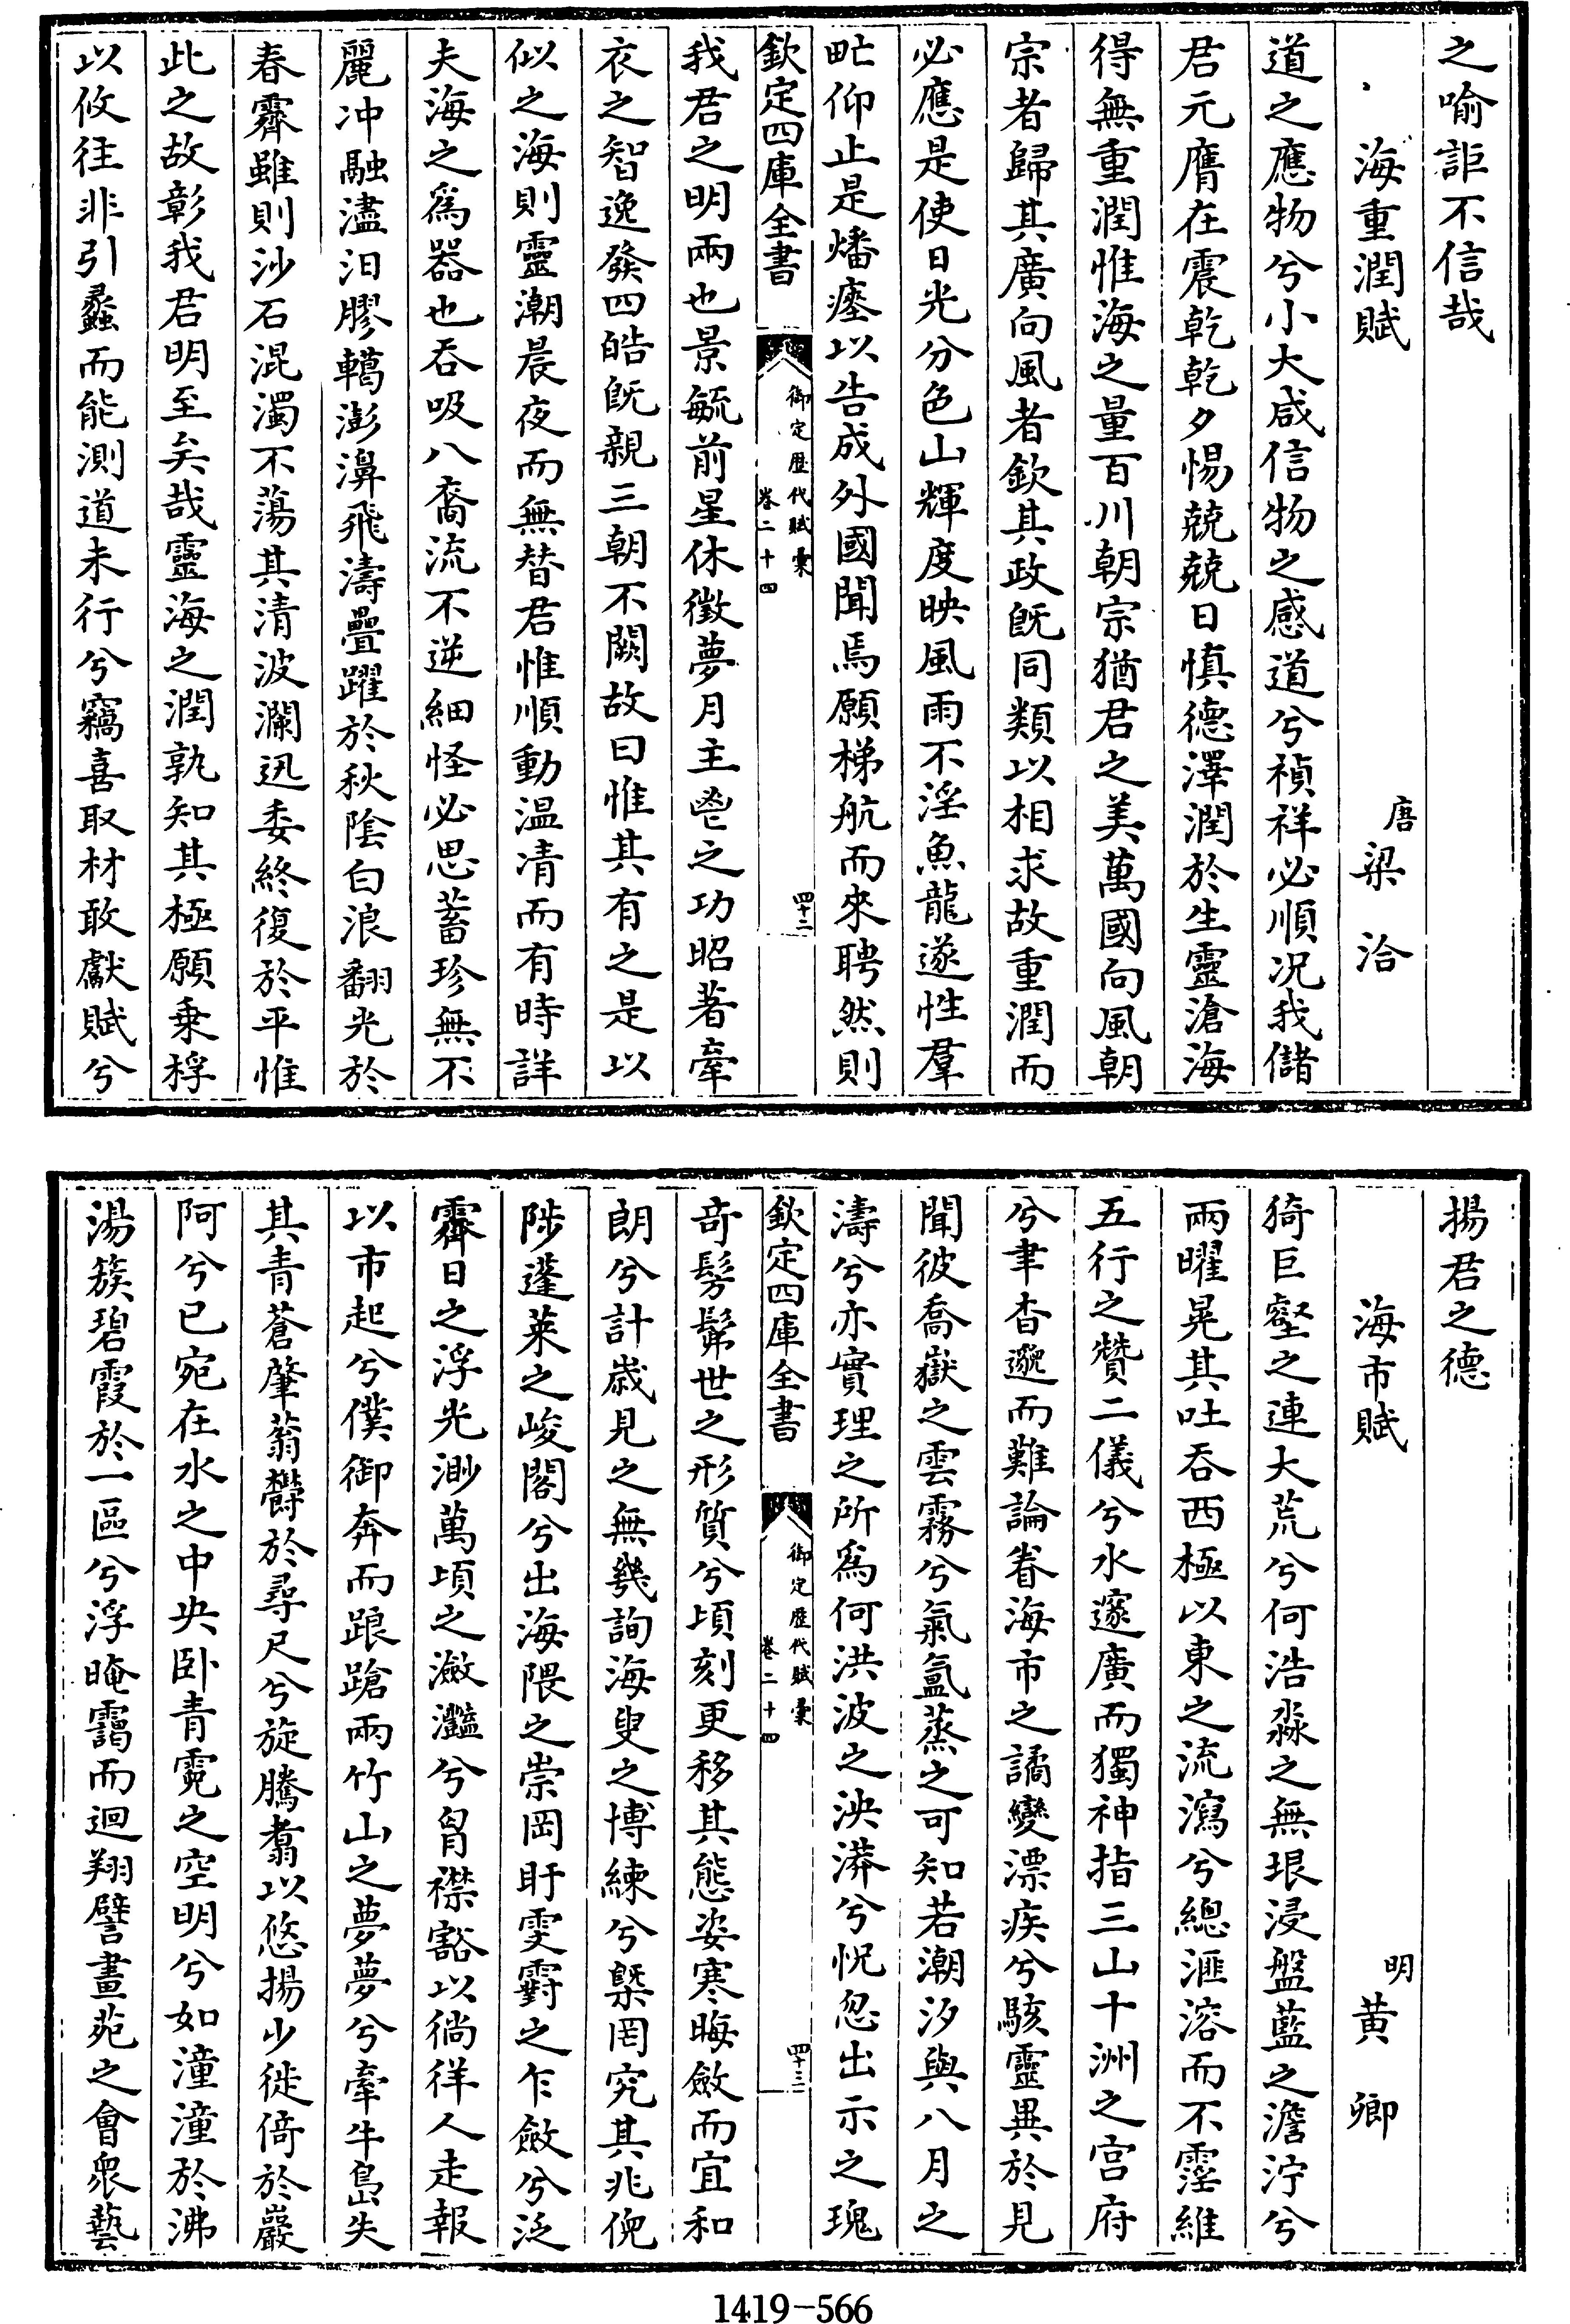 之喻詎不信哉
海重潤賦
唐梁洽
道之應物兮小大咸信物之感道兮禎祥必順况我儲
君元膺在震乾乾夕惕兢兢日慎德澤潤於生靈滄海
得無重潤惟海之量百川朝宗猶君之美萬國向風朝
宗者歸其廣向風者欽其政既同類以相求故重潤而
必應是使日光分色山輝度映風雨不淫魚龍遂性羣
甿仰止是燔瘞以告成外國聞焉願梯航而來聘然則
欽定四庫全書
御定歷代賦彚
卷二十四
四十二
我君之明兩也景毓前星休徵夢月主鬯之功昭著牽
衣之智逸發四皓既親三朝不闕故曰惟其有之是以
似之海則靈潮晨夜而無替君惟順動温凊而有時詳
夫海之爲器也吞吸八裔流不逆細怪必思蓄珍無不
麗冲融瀘汨膠轕澎濞飛濤疊躍於秋陰白浪翻光於
春霽雖則沙石混濁不蕩其清波瀾迅委終復於平惟
此之故彰我君明至矣哉靈海之潤孰知其極願乗桴
以攸往非引蠡而能測道未行兮竊喜取材敢獻賦兮
揚君之德
海市賦
明黄卿
猗巨壑之連大荒兮何浩淼之無垠浸盤藍之澹泞兮
兩曜晃其吐吞西極以東之流瀉兮總滙溶而不霪維
五行之贊二儀兮水邃廣而獨神指三山十洲之宫府
兮聿杳邈而難論眷海市之譎變漂疾兮駭靈異於見
聞彼喬嶽之雲霧兮氣氲蒸之可知若潮汐與八月之
濤兮亦實理之所爲何洪波之泱漭兮怳忽出示之瑰
欽定四庫全書
御定歷代賦彚
卷二十四
四十三
奇髣髴世之形質兮頃刻更移其態姿寒晦斂而宜和
朗兮計歲見之無幾詢海叟之博練兮槩罔究其兆倪
陟蓬萊之峻閣兮出海隈之崇岡盱雯霨之乍斂兮泛
霽日之浮光渺萬頃之瀲灩兮胷襟豁以徜徉人走報
以市起兮僕御奔而踉蹌兩竹山之夢夢兮牽牛島失
其青蒼肇蓊欝於尋尺兮旋騰翥以悠揚少徙倚於巖
阿兮已宛在水之中央卧青霓之空明兮如潼潼於沸
湯簇碧霞於一區兮浮晻靄而迴翔譬畫苑之會衆藝
1419-566